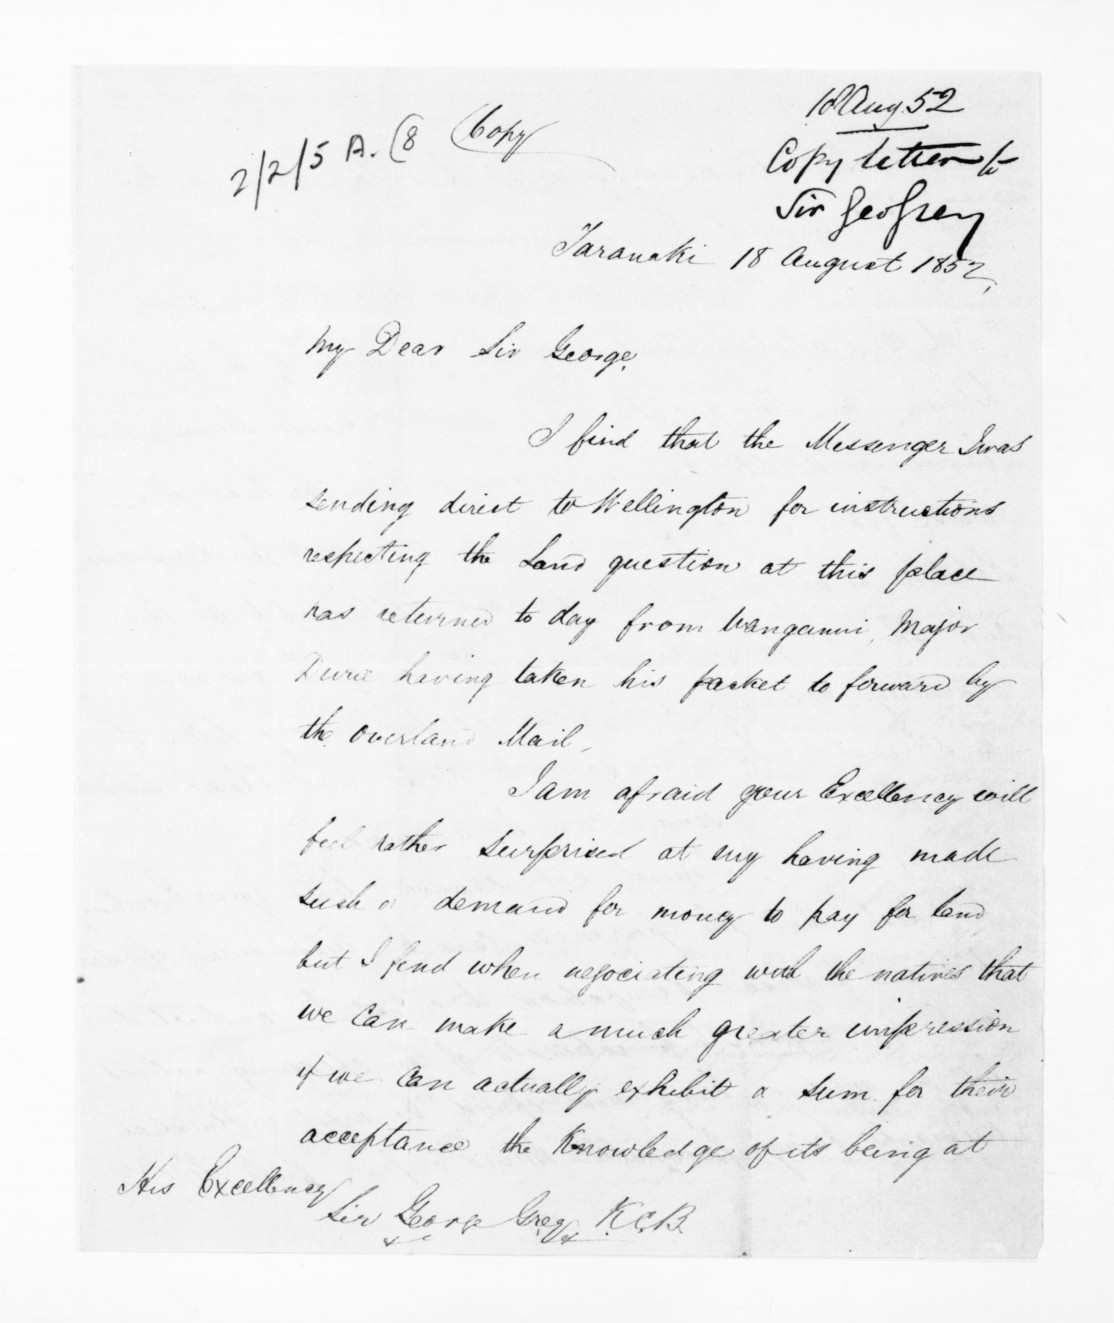 18 Aug. 52
Copy letter to
Sir Geo Grey
2/2/5 A. (8
Copy
Taranaki 18 August 1852,
My Dear Sir George,
I find that the Messenger I was
sending direct to Wellington for instructions
respecting the Land question at this place
has returned to day from Wanganui, Major
Durie having taken his packet to forward by
the overland Mail.
I am afraid your Excellency will
feel rather surprised at my having made
such a demand for money to pay for land
but I find when negociating with the natives that
we can make a much greater impression
if we can actually exhibit a sum for their
acceptance the Knowledge of its being at
His Excellency
Sir George Grey K.C.B.